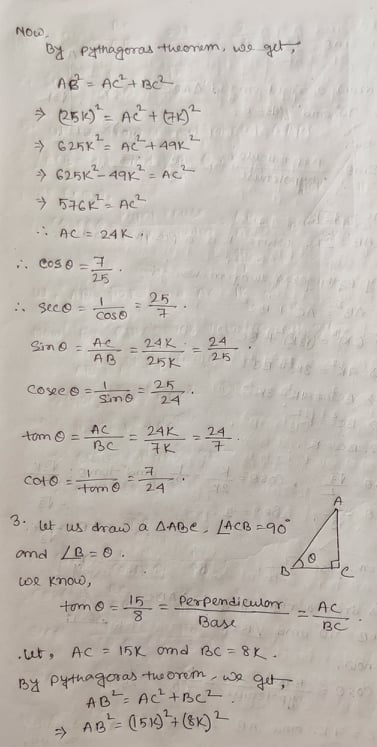 Now,
By Pythagoras theorem, we get,
AB² = AC² + BC²
⇒ (25K)² = AC² + (7K)²
⇒ 625K² = AC² + 49K²
⇒ 625K² - 49K² = AC²
⇒ 576K² = AC²
∴ AC = 24K.
∴ cosθ = 7/25.
∴ secθ = 1/cosθ = 25/7.
Sinθ = AC/AB = 24K/25K = 24/25.
Cosecθ = 1/Sinθ = 25/24.
tanθ = AC/BC = 24K/7K = 24/7.
Cotθ = 1/tanθ = 7/24.
3. Let us draw a ΔABC, ∠ACB = 90°
and ∠B = θ.
A
B θ C
we know,
tanθ = 15/8 = Perpendicular/Base = AC/BC.
.Let, AC = 15K and BC = 8K.
By Pythagoras theorem, we get,
AB² = AC² + BC².
⇒ AB² = (15K)² + (8K)²